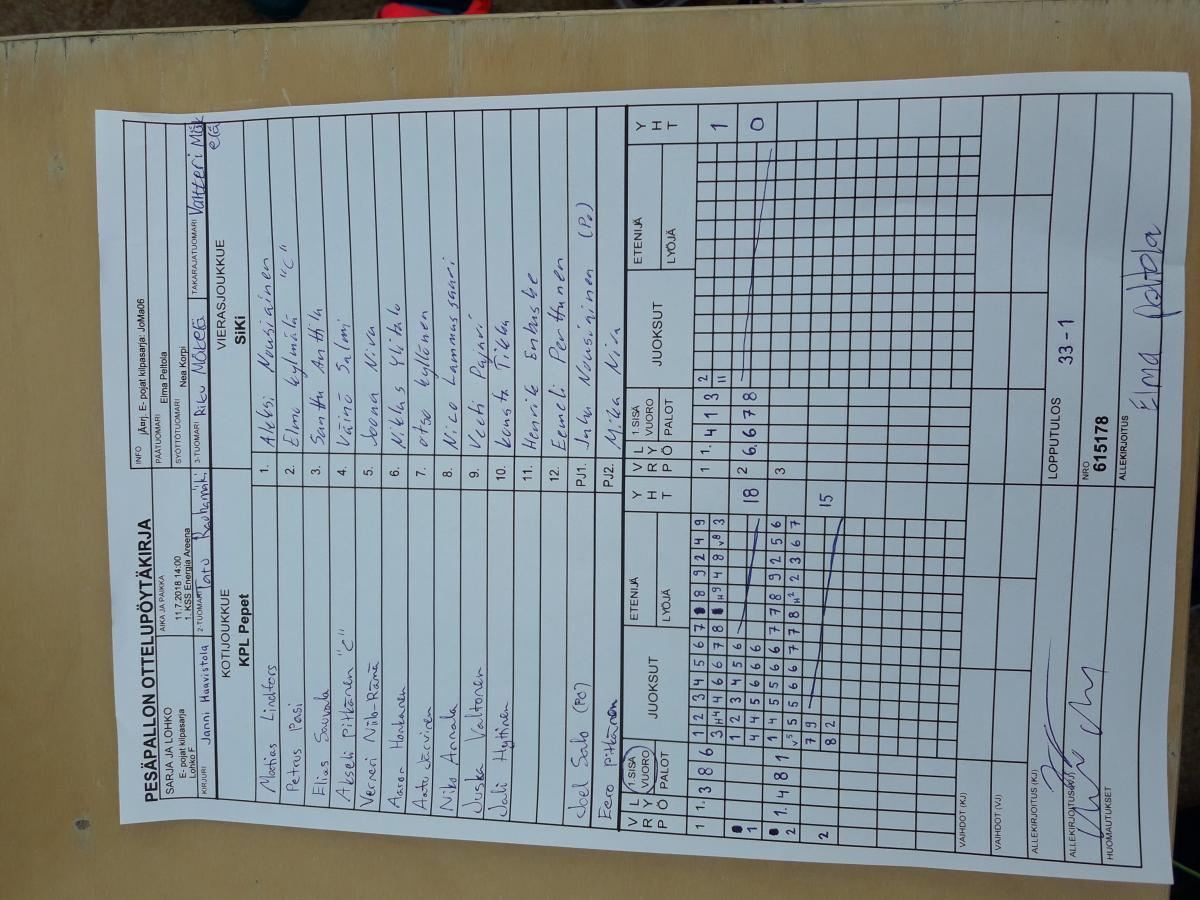 PESÄPALLON OTTELUPÖYTÄKIRJA
INFO jÃ¤rj. E- pojat kilpasarja: JoMa06
SARJA JA LOHKO
E- pojat kilpasarja
Lohko F
AIKA JA PAIKKA
11.7.2018 14:00
1. KSS Energia Areena
PÄÄTUOMARI Elma Peltola
SYÖTTÖTUOMARI Nea Korpi
KIRJURI Janni Haavistola
2-TUOMARI Tatu Rauhamäki
3-TUOMARI Riku Mäkelä
TAKARAJATUOMARI Valtteri Mäkelä
KOTIJOUKKUE
KPL Pepet
VIERASJOUKKUE
SiKi
Matias Lindfors 1. Aleksi Nousiainen
Petrus Pasi 2. Elmo Kylmälä "C"
Elias Sauvala 3. Santtu Anttila
Akseli Pitkänen "C" 4. Väinö Salmi
Verneri Niilo-Rämä 5. Joona Niva
Aaron Honkanen 6. Niklas Ylitalo
Aatu Järvinen 7. Otso Kyllönen
Niko Annala 8. Nico Lammassaari
Juska Valtonen 9. Veeti Pajari
Jali Hyttinen 10. Konsta Tikka
11. Henrik Enbuske
12. Eemeli Perttunen
Joel Salo (PO?) PJ1. Juha Nousiainen (Po)
Eero Pitkänen PJ2. Mika Niva
VRP LYÖ 1.SISÄ VUORO PALOT JUOKSUT ETENIJÄ LYÖJÄ YHT
VRP LYÖ 1.SISÄ VUORO PALOT JUOKSUT ETENIJÄ LYÖJÄ YHT
1 1. 3 8 6 1 2 3 4 5 6 7 8 9 2 4 9
3 H4 4 6 6 7 8 H9 4 8 v8 3
1 1. 4 1 3 2
11 1
1 2 3 4 5 6
1 4 4 5 6 6 6 18
2 6. 6 7 8 0
1. 4 8 1 1 4 5 5 6 6 7 7 8 9 2 5 6
2 v5 5 5 6 6 7 7 8 H2 2 3 6 7
3
7 9
2 8 2 15
VAIHDOT (KJ)
VAIHDOT (VJ)
ALLEKIRJOITUS (KJ)
LOPPUTULOS 33 - 1
ALLEKIRJOITUS
NRO
615178
HUOMAUTUKSET
ALLEKIRJOITUS
Elma Peltola